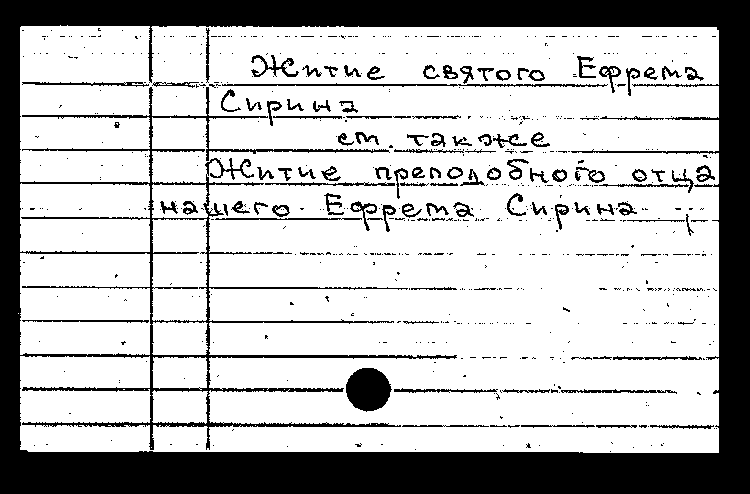 Житие святого Ефрема
Сирина
см. также
Житие преподобного отца
нашего Ефрема Сирина